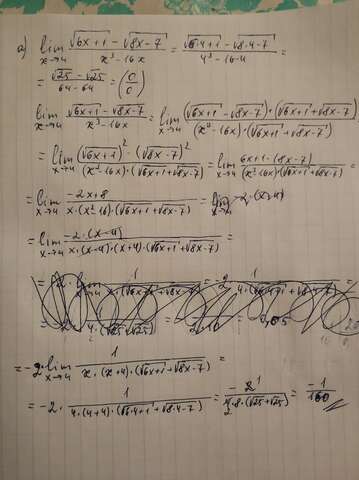 a) lim x→4 (√(6x+1) - √(8x-7))/(x³-16x) = (√(6·4+1) - √(8·4-7))/(4³-16·4) =
= (√25 - √25)/(64-64) = (0/0)
lim x→4 (√(6x+1) - √(8x-7))/(x³-16x) = lim x→4 ((√(6x+1) - √(8x-7))·(√(6x+1)+√(8x-7)))/((x³-16x)·(√(6x+1)+√(8x-7)))
= lim x→4 ((√(6x+1))² - (√(8x-7))²)/((x³-16x)·(√(6x+1)+√(8x-7))) = lim x→4 (6x+1-(8x-7))/((x³-16x)·(√(6x+1)+√(8x-7))) =
= lim x→4 (-2x+8)/(x·(x²-16)·(√(6x+1)+√(8x-7))) =
= lim x→4 (-2·(x-4))/(x·(x-4)·(x+4)·(√(6x+1)+√(8x-7))) =
= -2 lim x→4 1/(x·(x+4)·(√(6x+1)+√(8x-7))) =
= -2· 1/(4·(4+4)·(√(6·4+1)+√(8·4-7))) = -2¹/(4₂·8·(√25+√25)) = -1/160